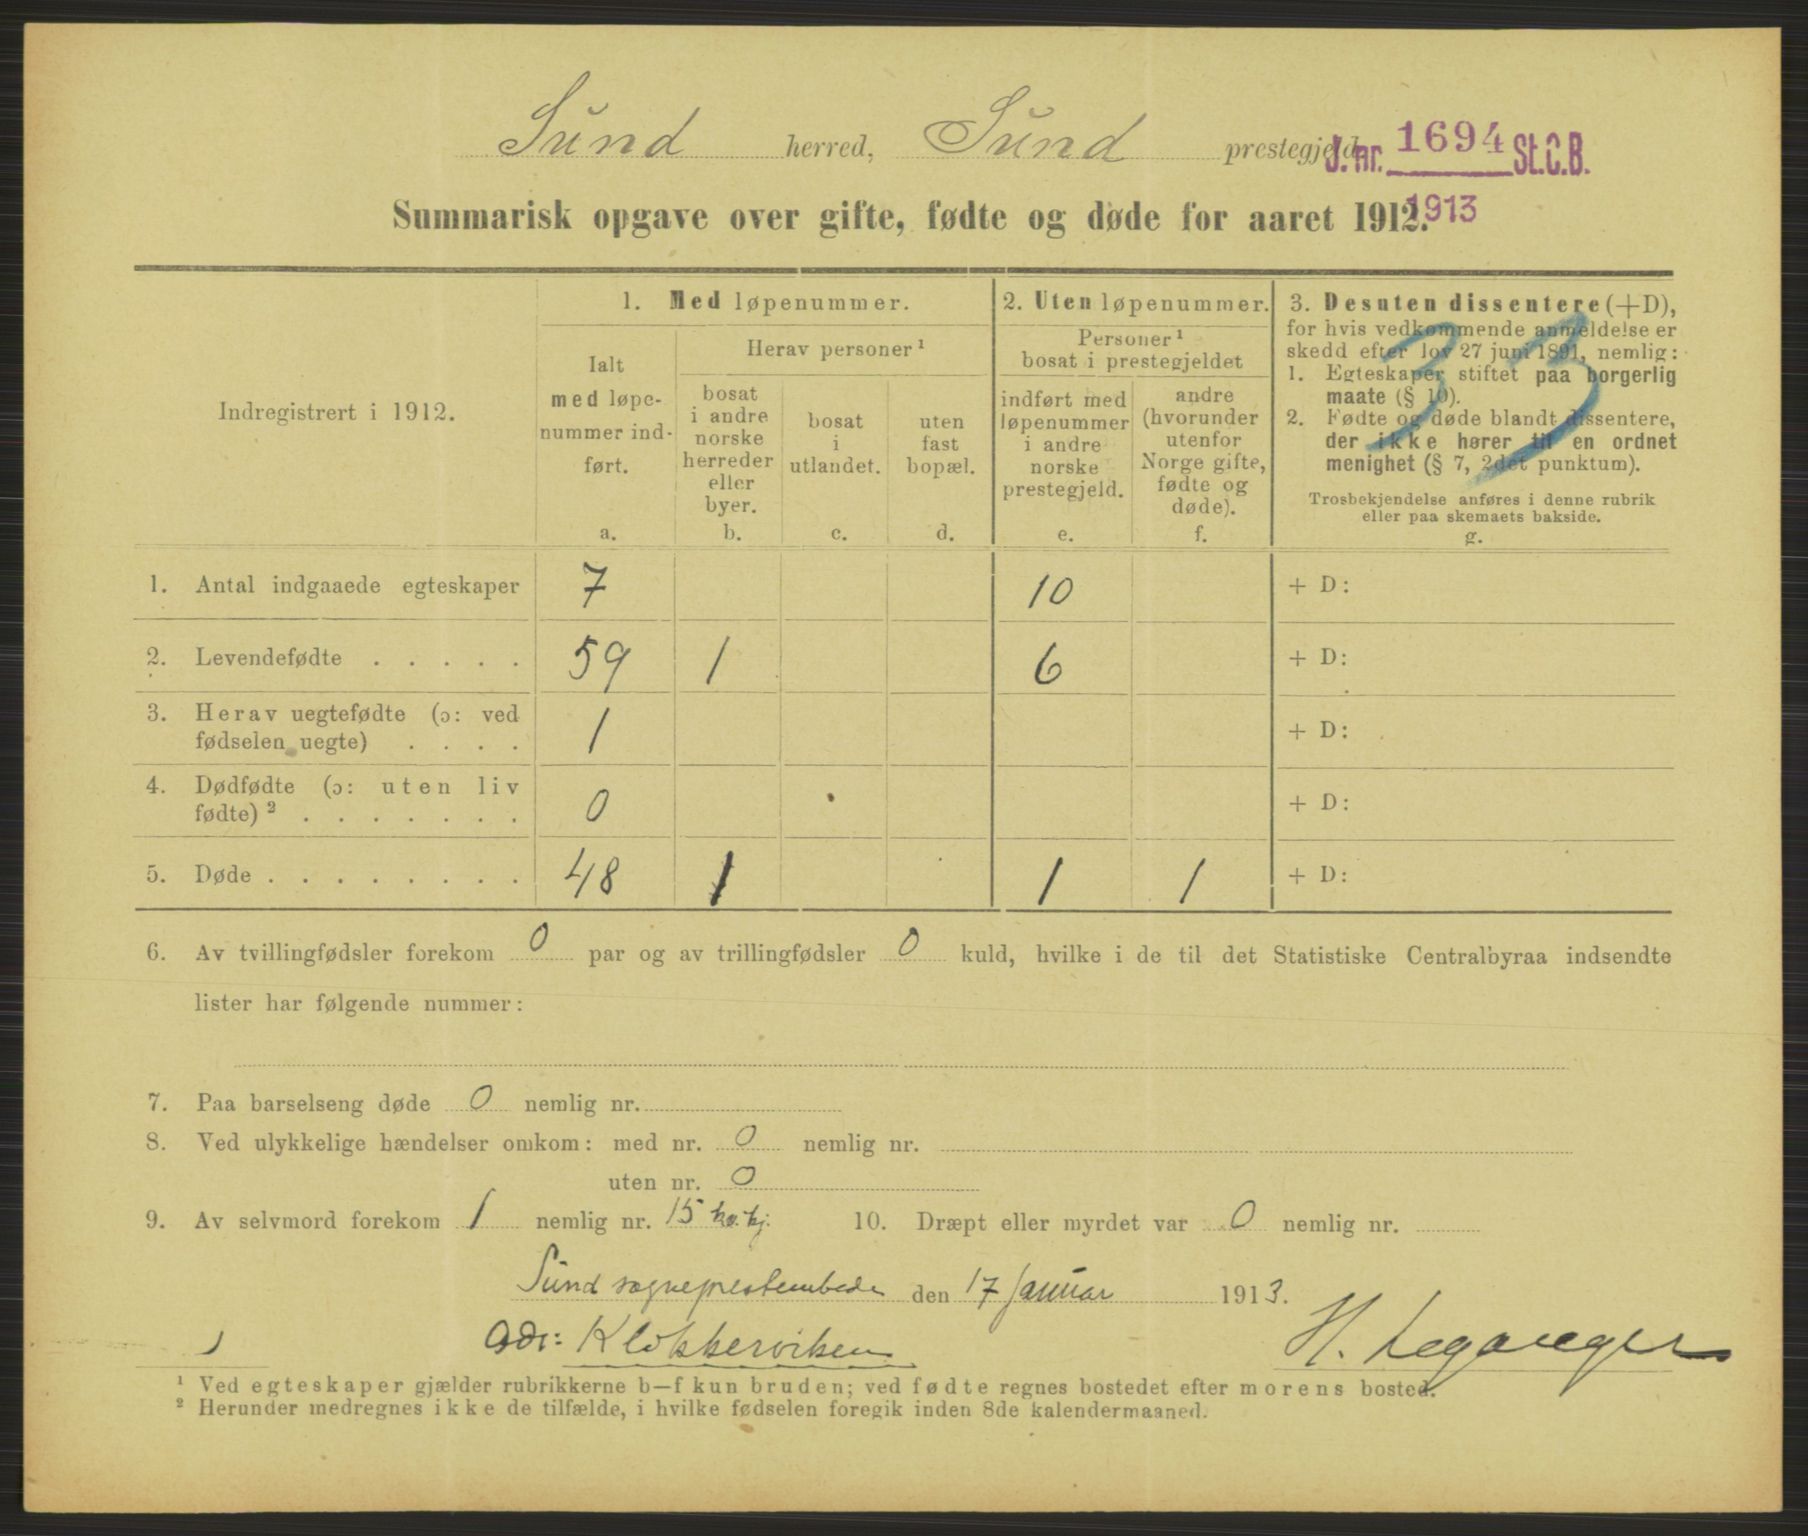 Sund herred, Sund prestegjeld. J. nr. 1694 St.C.B.
Summarisk opgave over gifte, fødte og døde for aaret 1912. 1913
Indregistrert i 1912.
1. Med løpenummer.
Ialt
med løpe-
nummer ind-
ført.
a.
Herav personer ¹
bosat
i andre
norske
herreder
eller
byer.
b.
bosat
i
utlandet.
c.
uten
fast
bopæl.
d.
2. Uten løpenummer.
Personer ¹
bosat i prestegjeldet
indført med
løpenummer
i andre
norske
prestegjeld.
e.
andre
(hvorunder
utenfor
Norge gifte,
fødte og
døde).
f.
3. Desuten dissentere (+D),
for hvis vedkommende anmeldelse er
skedd efter lov 27 juni 1891, nemlig:
1. Egteskaper stiftet paa borgerlig
maate (§ 10).
2. Fødte og døde blandt dissentere,
der ikke hører til en ordnet
menighet (§ 7, 2det punktum).
Trosbekjendelse anføres i denne rubrik
eller paa skemaets bakside.
g.
33
1. Antal indgaaede egteskaper 7 10 + D:
2. Levendefødte . . . . . 59 1 6 + D:
3. Herav uegtefødte (ɔ: ved
fødselen uegte) . . . . 1 + D:
4. Dødfødte (ɔ: uten liv
fødte) ² . . . . . . . 0 + D:
5. Døde . . . . . . . . 48 1 1 1 + D:
6. Av tvillingfødsler forekom 0 par og av trillingfødsler 0 kuld, hvilke i de til det Statistiske Centralbyraa indsendte
lister har følgende nummer:
7. Paa barselseng døde 0 nemlig nr.
8. Ved ulykkelige hændelser omkom: med nr. 0 nemlig nr.
uten nr. 0
9. Av selvmord forekom 1 nemlig nr. 15 kv.kj. 10. Dræpt eller myrdet var 0 nemlig nr.
Sund sogneprestembede den 17 Januar 1913.
Adr: Klokkerviken H. Leganger
¹ Ved egteskaper gjælder rubrikkerne b—f kun bruden; ved fødte regnes bostedet efter morens bosted.
² Herunder medregnes ikke de tilfælde, i hvilke fødselen foregik inden 8de kalendermaaned.